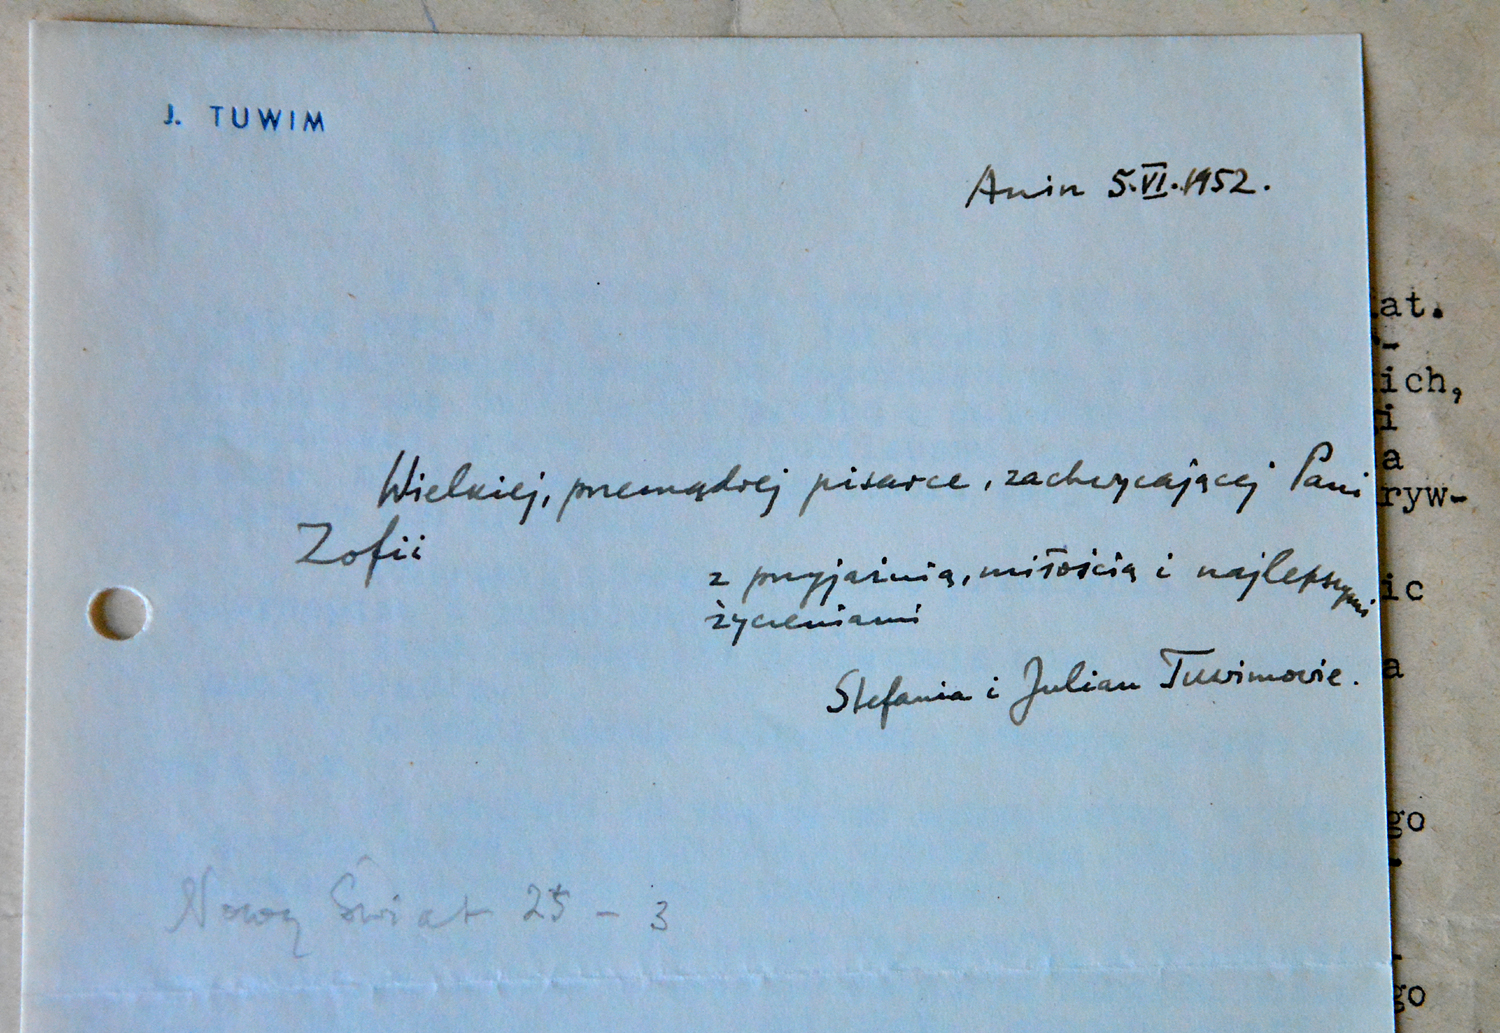 J. TUWIM
Anin 5.VI.1952.
Wielkiej, przemądrej pisarce, zachwycającej Pani
Zofii
z przyjaźnią, miłością i najlepszymi
życzeniami
Stefania i Julian Tuwimowie.
Nowy Świat 25 - 3
at.
-
ich,
i
a
ryw-
ic
a
go
-
go